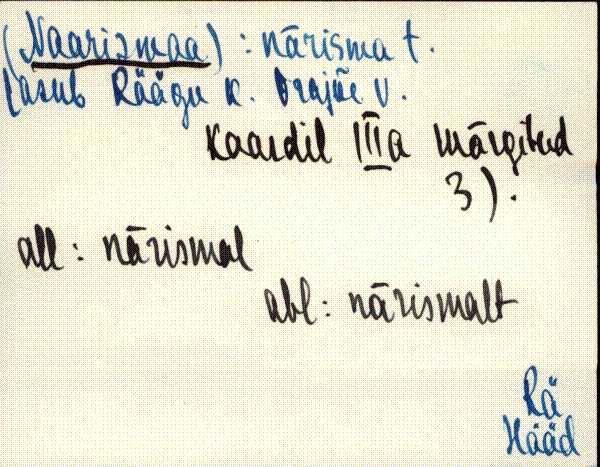 (Naarismaa) : närisma t.
Lasub Räägu k. Orajõe v.
Kaardil IIIa märgitud
3).
all : närismal
abl : närismalt
Rä
Hääd